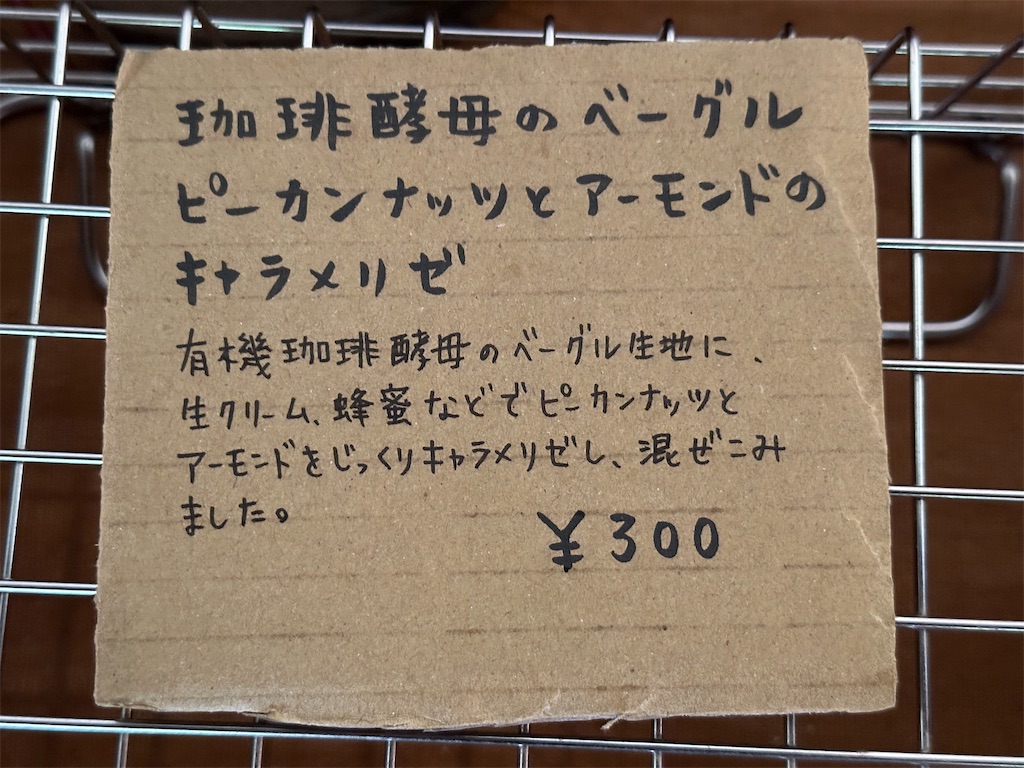 珈琲酵母のベーグル
ピーカンナッツとアーモンドの
キャラメリゼ
有機珈琲酵母のベーグル生地に、
生クリーム、蜂蜜などでピーカンナッツと
アーモンドをじっくりキャラメリゼし、混ぜこみ
ました。
¥300